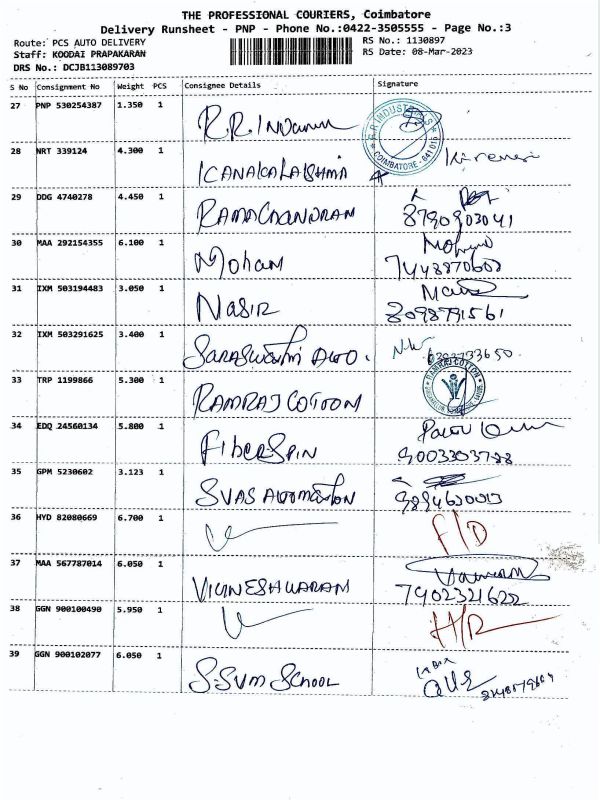 THE PROFESSIONAL COURIERS, Coimbatore
Delivery Runsheet - PNP - Phone No.:0422-3505555 - Page No.:3
Route: PCS AUTO DELIVERY
RS No.: 1130897
Staff: KOODAI PRAPAKARAN
RS Date: 08-Mar-2023
DRS No.: DCJB113089703
S No Consignment No Weight PCS Consignee Details Signature
27 PNP 530254387 1.350 1
R.R. INDUSTRIES
COIMBATORE - 641 015
28 NRT 339124 4.300 1
KANAKALAKSHMIA
29 DDG 4740278 4.450 1
RAMACHANDRAM
8790903041
30 MAA 292154355 6.100 1
Moham
7448870608
31 IXM 503194483 3.050 1
NASIR
8098791561
32 IXM 503291625 3.400 1
Saraswathi Auto.
33 TRP 1199866 5.300 1
RAMRAJ COTTON
RAMRAJ COTTOOM
34 EDQ 24560134 5.800 1
FiberSpin
9003303788
35 GPM 5230602 3.123 1
SVAS Automation
36 HYD 82080669 6.700 1
F/D
37 MAA 567787014 6.050 1
VIGNESHWARAM
7902321622
38 GGN 900100490 5.950 1
H/R
39 GGN 900102077 6.050 1
S.SVM SCHOOL